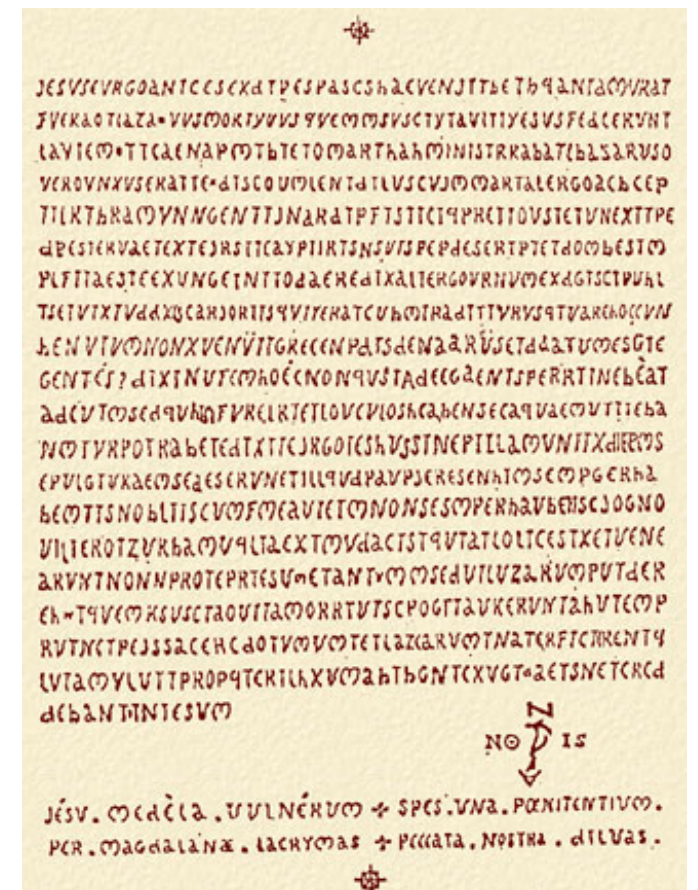 JESVSEVRGOANTCESEXdTPESPASCShaEVENJTTbETbqANTAMVRAT
FVERAOTIAZA•VVSMORTYVVSqVEMMSVSCTYTAVITIYESVSFEdCERVNT
LAVIEM•TTCAENAPMTbTETOMARThAhMINISTRRAbATCbAZARUSO
VEROVNXVSERATTE•dTSCOUMLENTdTLUSCVJMMARTALERGOACbCEP
TTLRThRAMVNNGENTTJNARdTPFTSTTCTqPRETTOVSTETUNEXTTPE
dPESTERVAETEXTEJRSTTCAYPIIRTSNSVTSPEPdESERTPTETdOMbESTM
PLFTTAESTEEXUNGETNTTOdAEREdTXALTERGOVRNVMEXdGTSCTPVhL
TSETVTXTVddXGCARJORTTSqVIYERATCUhMTRAdTTTVRVSqTVAREhOCCVN
hENVTVMNONXVENVTTGRECENPdTSdENAARVSETdAATUMESGTE
GENTÉS?dTXTNUTEMhOÉCNONqVSTAdECGAENTSPERRTINEbEAT
AdCUTMSEdqVhMFVRELRTETLOVCVLOShCAbENSECAqVAEMUTTTEbA
NMTVRPOTRAbETEdTXTTEJRGOTEShVSSTNEPTLLAMVNTTXdIEPMS
EPVLGTVRAEMSEAESERVNETILLqVdPAVPJERESENhTMSEMPGERhA
bEMTTSNObLTTSCVMFMEAVTETMNONSESMPERhAVbENSCJOGNO
VILTEROTZVRbAMVqLTAEXTMVdACTSTqVTATLOLTCESTXETVENE
ARVNTNONNPROTEPRTESUMETANTVMMSEdVTLUZARVMPUTdER
Eh•TqVEMKSUSCTAOVTTAMORRTUTSCPOGTTAVKERVNTAhVTEMP
RVTNCTPEJSSACERCdOTVMVMTETLAZCARVMTNATERFTCRRENTq
LVTAMYLVTTPROPqTERTLhXVMAbThGNTEXVGT•AETSNETCRCd
dEbANTINTESVM
NO IS
JÉSV . MEdÈLA . VULNÉRUM ✢ SPES . VNA . PŒNITENTIVM .
PER . MAGdALANÆ . LACRYMAS ✢ PECCATA . NOSTRA . dILVAS .